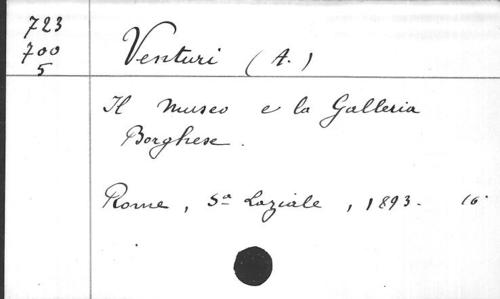 723
700
5
Venturi (A.)
Il museo e la Galleria
Borghese.
Rome, Sa Laziale, 1893. 16°